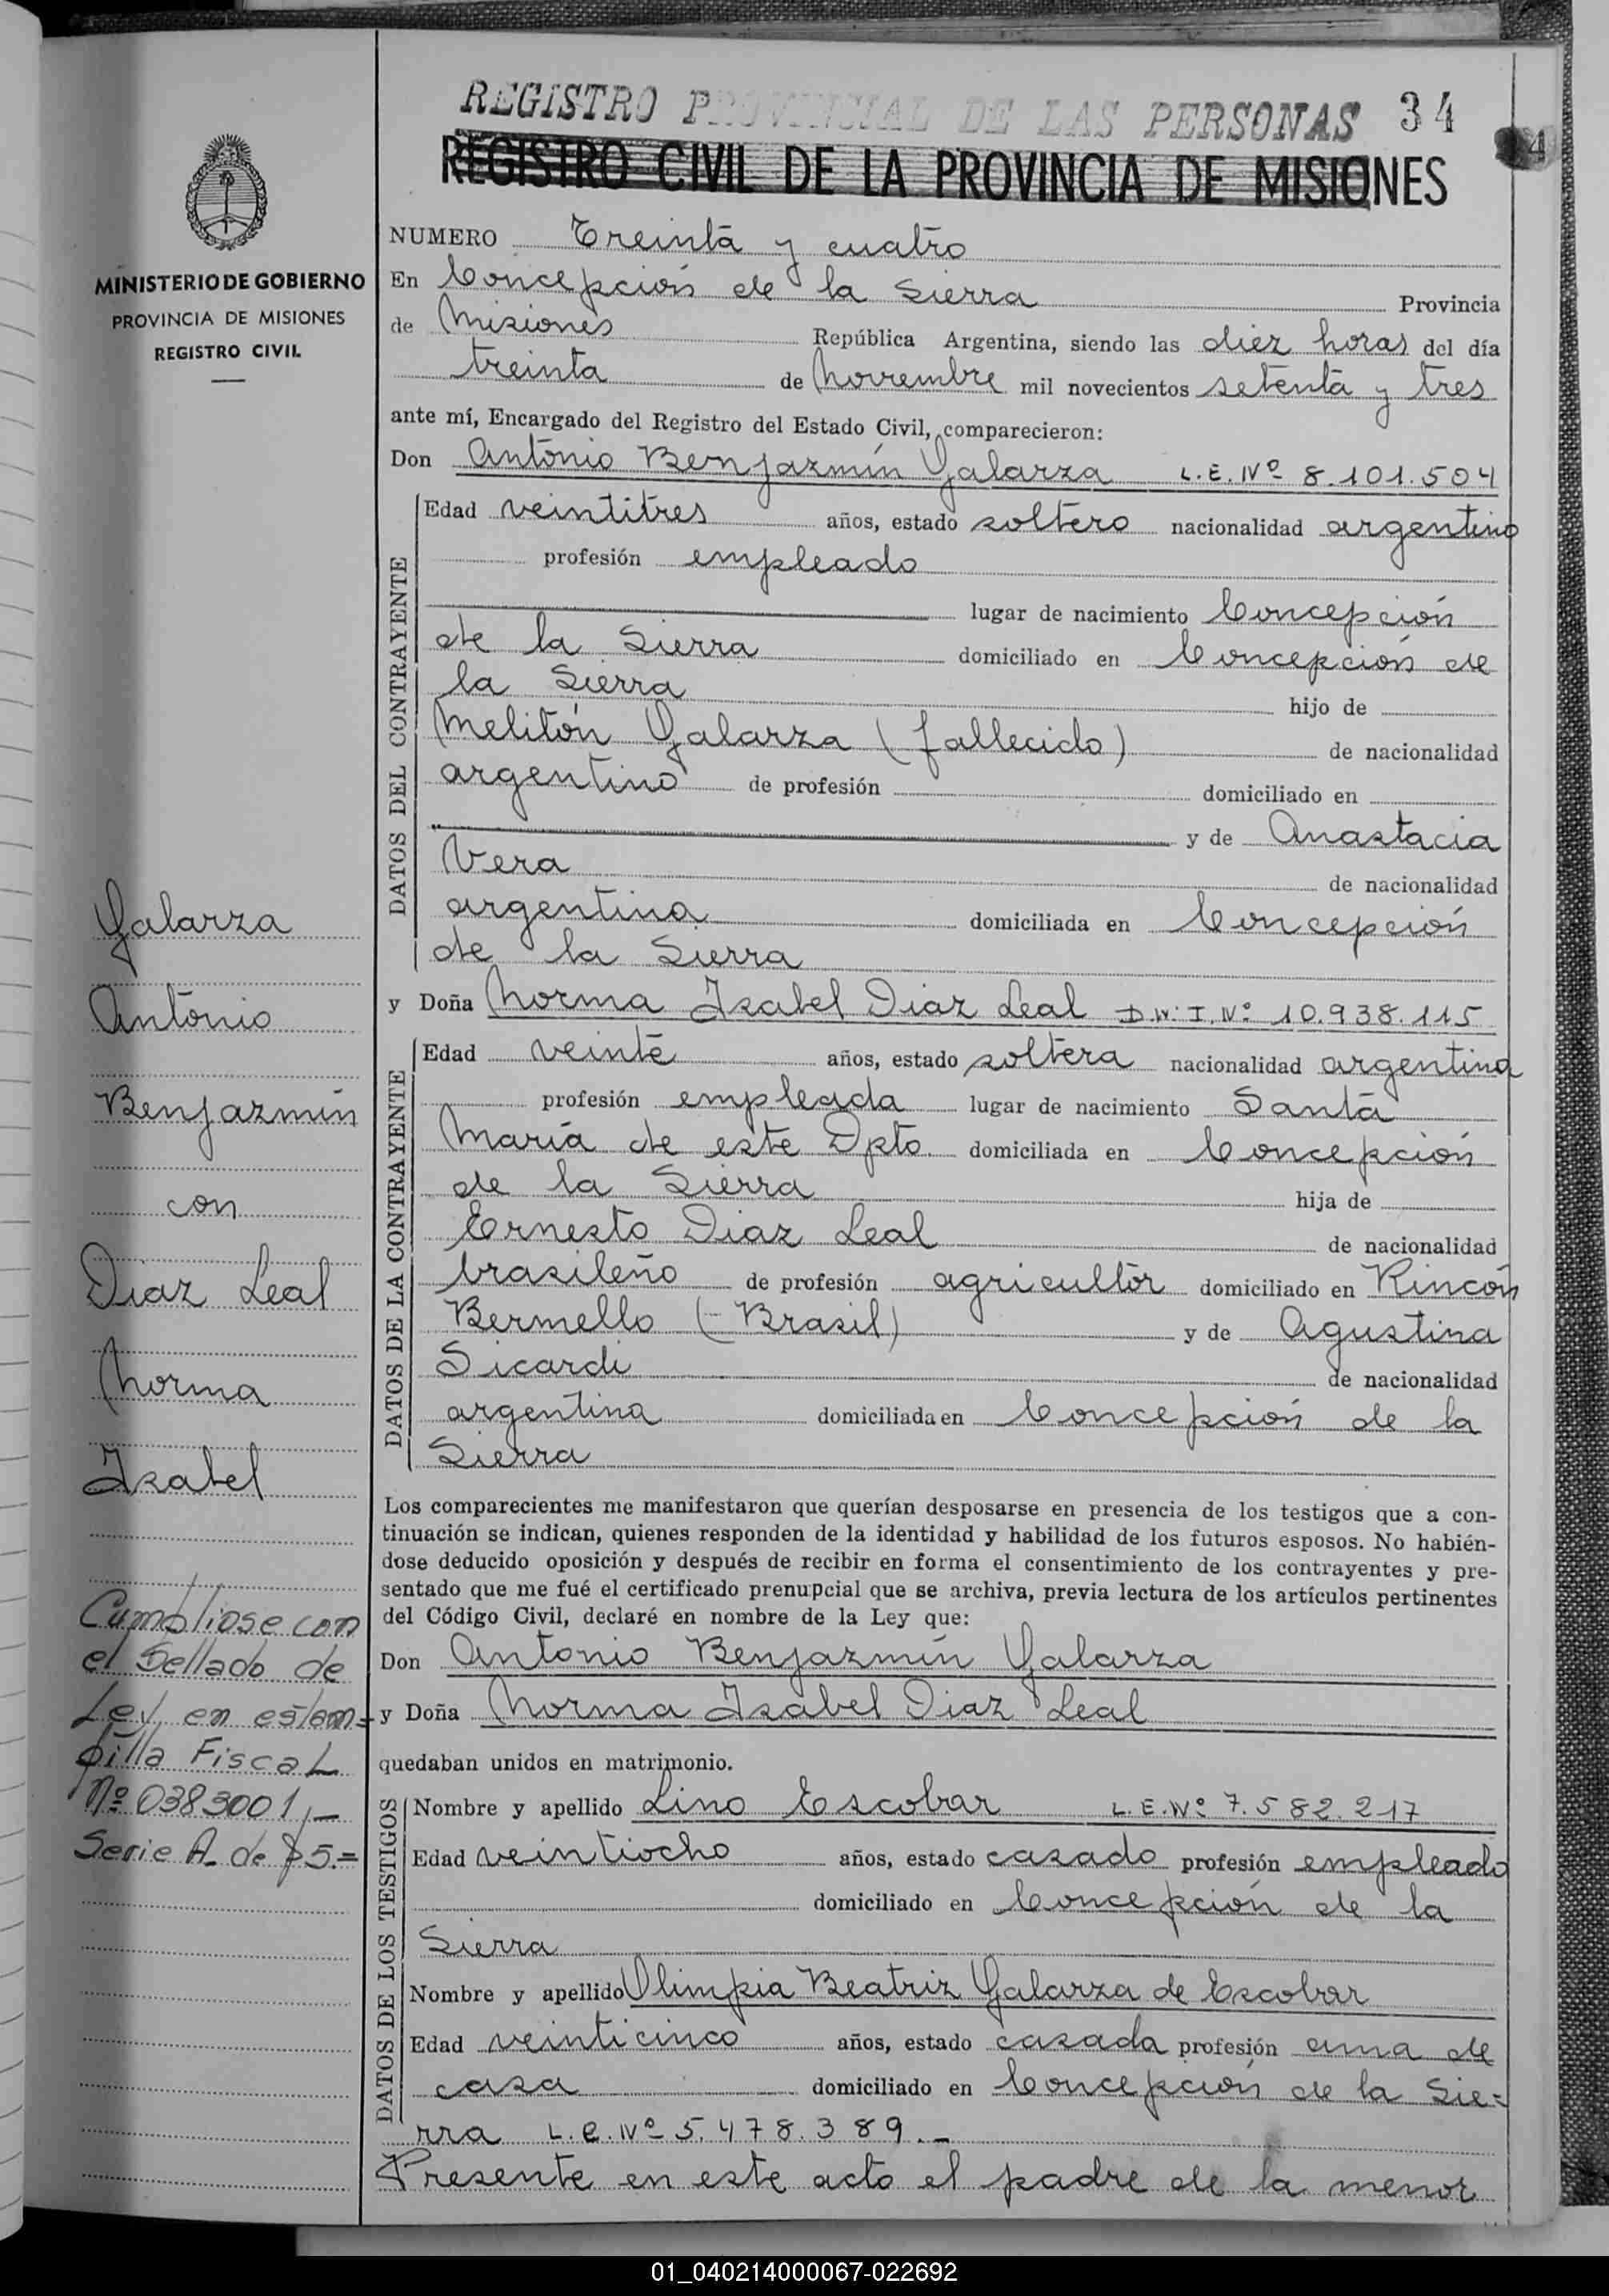 REGISTRO PROVINCIAL DE LAS PERSONAS 34
REGISTRO CIVIL DE LA PROVINCIA DE MISIONES
MINISTERIO DE GOBIERNO
PROVINCIA DE MISIONES
REGISTRO CIVIL
NUMERO Treinta y cuatro
En Concepción de la Sierra Provincia
de Misiones República Argentina, siendo las diez horas del día
treinta de Noviembre mil novecientos setenta y tres
ante mí, Encargado del Registro del Estado Civil, comparecieron:
Don Antonio Benjazmín Galarza L.E. Nº 8.101.504
DATOS DEL CONTRAYENTE
Edad veintitres años, estado soltero nacionalidad argentino
profesión empleado
lugar de nacimiento Concepción
de la Sierra domiciliado en Concepción de
la Sierra hijo de
Melitón Galarza (fallecido) de nacionalidad
argentino de profesión domiciliado en
y de Anastacia
Vera de nacionalidad
argentina domiciliada en Concepción
de la Sierra
y Doña Norma Isabel Diaz Leal D.N.I. Nº 10.938.115
DATOS DE LA CONTRAYENTE
Edad veinte años, estado soltera nacionalidad argentina
profesión empleada lugar de nacimiento Santa
María de este Dpto. domiciliada en Concepción
de la Sierra hija de
Ernesto Diaz Leal de nacionalidad
brasileño de profesión agricultor domiciliado en Rincón
Bermello (-Brasil) y de Agustina
Sicardi de nacionalidad
argentina domiciliada en Concepción de la
Sierra
Los comparecientes me manifestaron que querían desposarse en presencia de los testigos que a con-
tinuación se indican, quienes responden de la identidad y habilidad de los futuros esposos. No habién-
dose deducido oposición y después de recibir en forma el consentimiento de los contrayentes y pre-
sentado que me fué el certificado prenupcial que se archiva, previa lectura de los artículos pertinentes
del Código Civil, declaré en nombre de la Ley que:
Don Antonio Benjazmín Galarza
y Doña Norma Isabel Diaz Leal
quedaban unidos en matrimonio.
DATOS DE LOS TESTIGOS
Nombre y apellido Lino Escobar L.E. Nº 7.582.217
Edad veintiocho años, estado casado profesión empleado
domiciliado en Concepción de la
Sierra
Nombre y apellido Olimpia Beatriz Galarza de Escobar
Edad veinticinco años, estado casada profesión ama de
casa domiciliado en Concepción de la Sie=
rra L.C. Nº 5.478.389.-
Presente en este acto el padre de la menor
Galarza
Antonio
Benjazmín
con
Diaz Leal
Norma
Isabel
Cumpliose con
el Sellado de
Ley en estam=
pilla Fiscal
Nº 0383001,-
Serie A. de $ 5.=
01_040214000067-022692